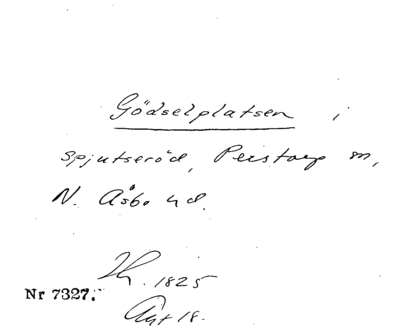 Gödselplatsen i
Spjutseröd, Perstorp m,
N. Åsbo hd.
Th. 1825
Nr 7327.
Akt 18.